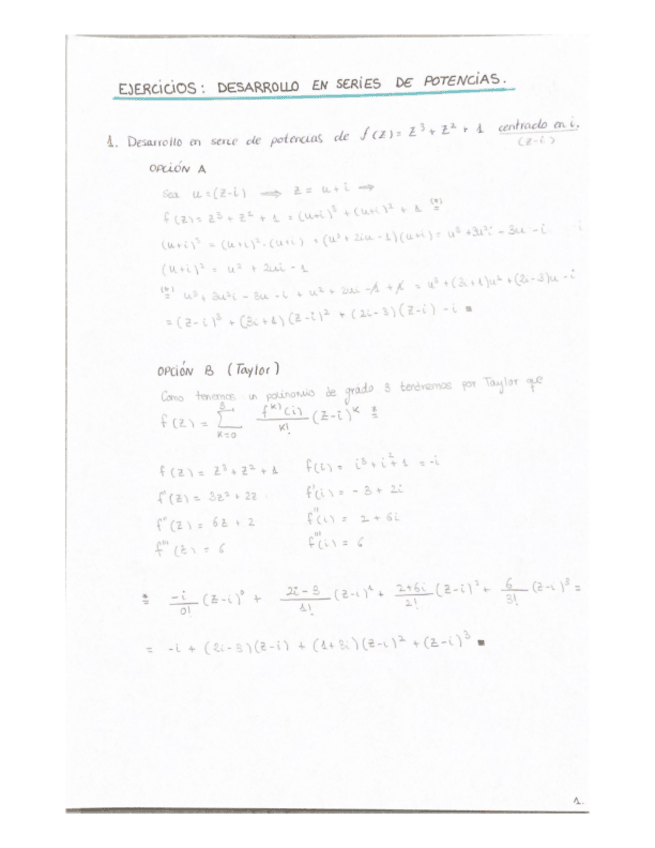 EJERCICIOS: DESARROLLO EN SERIES DE POTENCIAS.
1. Desarrollo en serie de potencias de f(z) = z³ + z² + 1 centrado en i.
(z-i)
OPCIÓN A
Sea u = (z-i) ⟹ z = u+i ⟹
f(z) = z³ + z² + 1 = (u+i)³ + (u+i)² + 1 (*)=
(u+i)³ = (u+i)²·(u+i) = (u²+2iu-1)(u+i) = u³+3u²i-3u-i
(u+i)² = u² + 2ui - 1
(*)= u³ + 3u²i - 3u - i + u² + 2ui - 1 + 1 = u³ + (3i+1)u² + (2i-3)u - i
= (z-i)³ + (3i+1)(z-i)² + (2i-3)(z-i) - i ■
OPCIÓN B (Taylor)
Como tenemos un polinomio de grado 3 tendremos por Taylor que
f(z) = ∑ₖ₌₀³ f^(k)(i)/k! (z-i)^k *=
f(z) = z³+z²+1 f(i) = i³+i²+1 = -i
f'(z) = 3z²+2z f'(i) = -3+2i
f''(z) = 6z+2 f''(i) = 2+6i
f'''(z) = 6 f'''(i) = 6
*= -i/0! (z-i)⁰ + 2i-3/1! (z-i)¹ + 2+6i/2! (z-i)² + 6/3! (z-i)³ =
= -i + (2i-3)(z-i) + (1+3i)(z-i)² + (z-i)³ ■
1.